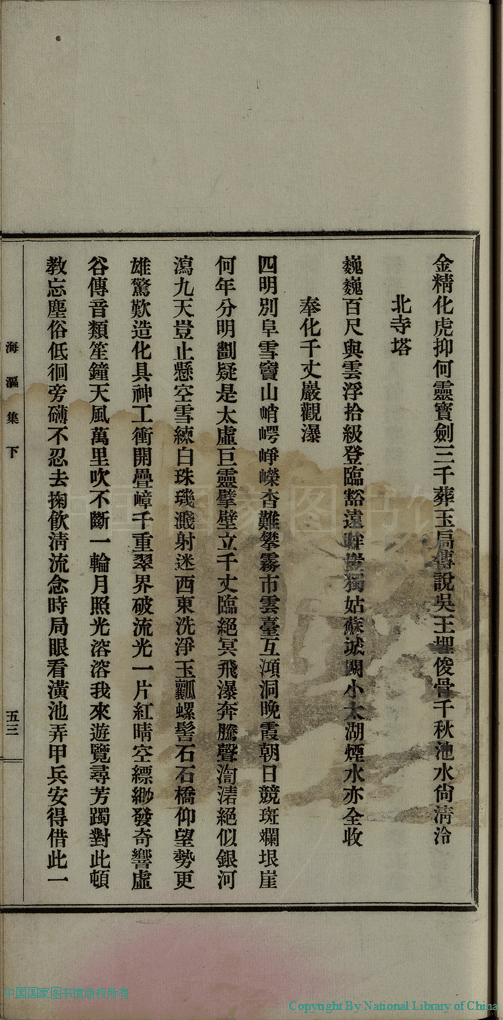 金精化虎抑何靈寶劍三千葬玉局傳說吳王埋俊骨千秋池水尙淸泠
北寺塔
巍巍百尺與雲浮拾級登臨豁遠眸豈獨姑蘇城闕小太湖煙水亦全收
奉化千丈巖觀瀑
四明別阜雪竇山峭崿崢嶸杳難攀霧市雲臺互澒洞晚霞朝日競斑斕垠崖
何年分明劃疑是太虛巨靈擘壁立千丈臨絕冥飛瀑奔騰聲㵧渚絕似銀河
瀉九天豈止懸空雪練白珠璣濺射迷西東洗淨玉瓤螺髻石石橋仰望勢更
雄驚歎造化具神工衝開疊嶂千重翠界破流光一片紅晴空縹緲發奇響虛
谷傳音類笙鐘天風萬里吹不斷一輪月照光溶溶我來遊覽尋芳躅對此頓
教忘塵俗低徊旁礴不忍去掬飮淸流念時局眼看潢池弄甲兵安得借此一
海漚集下
五三
Copyright By National Library of China